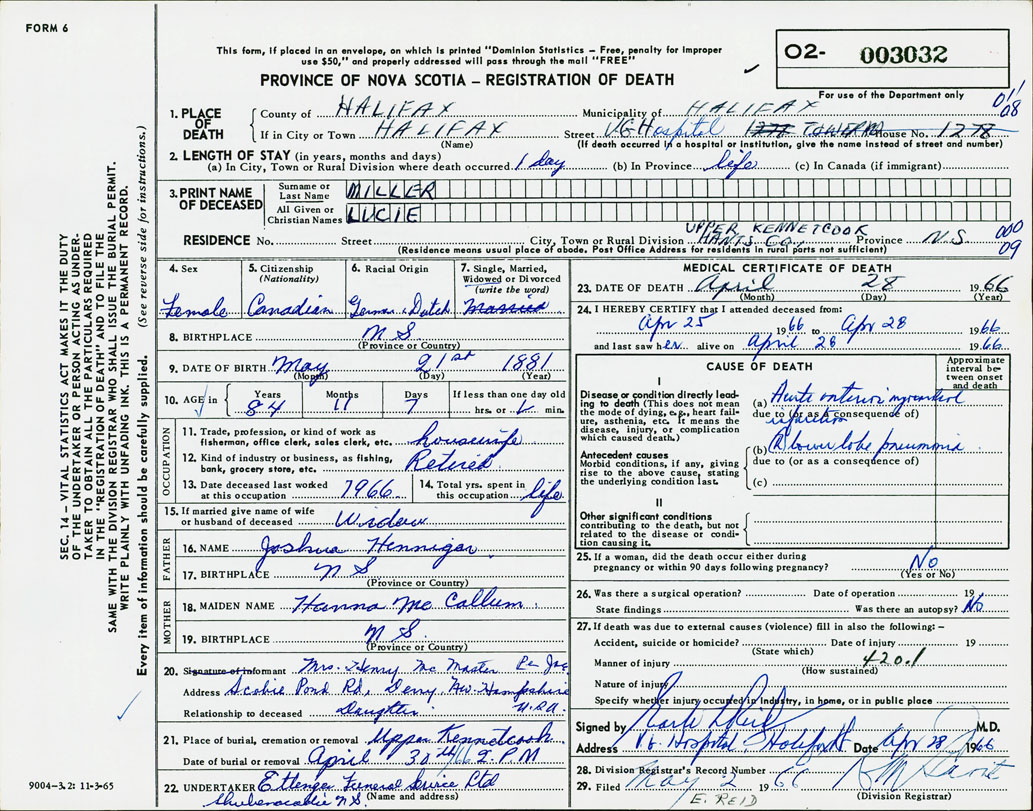 FORM 6
This form, if placed in an envelope, on which is printed "Dominion Statistics – Free, penalty for improper
use $50," and properly addressed will pass through the mail "FREE"
PROVINCE OF NOVA SCOTIA – REGISTRATION OF DEATH
O2- 003032
For use of the Department only
011
08
1. PLACE OF DEATH
County of HALIFAX Municipality of HALIFAX
If in City or Town HALIFAX Street VG Hospital 1278 House No. 1278
(Name) (If death occurred in a hospital or institution, give the name instead of street and number)
2. LENGTH OF STAY (in years, months and days)
(a) In City, Town or Rural Division where death occurred 1 day (b) In Province life (c) In Canada (if immigrant)
3. PRINT NAME OF DECEASED
Surname or Last Name MILLER
All Given or Christian Names LUCIE
RESIDENCE No. Street City, Town or Rural Division UPPER KENNETCOOK HANTS CO., Province N.S.
(Residence means usual place of abode. Post Office Address for residents in rural parts not sufficient)
000
09
4. Sex Female
5. Citizenship (Nationality) Canadian
6. Racial Origin German Dutch
7. Single, Married, Widowed or Divorced (write the word) Married
8. BIRTHPLACE N S
(Province or Country)
9. DATE OF BIRTH May 21st 1881
(Month) (Day) (Year)
10. AGE in Years 84 Months 11 Days 7 If less than one day old hrs. or min.
OCCUPATION
11. Trade, profession, or kind of work as fisherman, office clerk, sales clerk, etc. housewife
12. Kind of industry or business, as fishing, bank, grocery store, etc. Retired
13. Date deceased last worked at this occupation 1966
14. Total yrs. spent in this occupation life
15. If married give name of wife or husband of deceased Widow
FATHER
16. NAME Joshua Hennigar
17. BIRTHPLACE N S
(Province or Country)
MOTHER
18. MAIDEN NAME Hanna Mc Callum
19. BIRTHPLACE N S.
(Province or Country)
20. Signature of informant Mrs. Henry Mc Master
Address Scobie Pond Rd, Derry, New Hampshire
U.S.A.
Relationship to deceased Daughter
21. Place of burial, cremation or removal Upper Kennetcook
Date of burial or removal April 30th/66 2. P.M
22. UNDERTAKER Ettenger Funeral Service Ltd
Shubenacadie N.S. (Name and address)
MEDICAL CERTIFICATE OF DEATH
23. DATE OF DEATH April 28 1966
(Month) (Day) (Year)
24. I HEREBY CERTIFY that I attended deceased from:
Apr 25 1966 to Apr 28 1966
and last saw her alive on April 28 1966
CAUSE OF DEATH
Approximate interval between onset and death
I
Disease or condition directly leading to death (This does not mean the mode of dying, e.g., heart failure, asthenia, etc. It means the disease, injury, or complication which caused death.)
(a) Acute anterior myocardial
due to (or as a consequence of)
infarction
Antecedent causes
Morbid conditions, if any, giving rise to the above cause, stating the underlying condition last.
(b) R lower lobe pneumonia
due to (or as a consequence of)
(c)
II
Other significant conditions
contributing to the death, but not related to the disease or condition causing it.
25. If a woman, did the death occur either during
pregnancy or within 90 days following pregnancy? No
(Yes or No)
26. Was there a surgical operation? Date of operation 19
State findings Was there an autopsy? No
27. If death was due to external causes (violence) fill in also the following: –
Accident, suicide or homicide? Date of injury 19
(State which)
Manner of injury 420.1
(How sustained)
Nature of injury
Specify whether injury occurred in industry, in home, or in public place
Signed by M.D.
Address V.G. Hospital, Halifax Date Apr 28 1966
28. Division Registrar's Record Number
29. Filed May 2 1966
E. REID
(Division Registrar)
SEC. 14 – VITAL STATISTICS ACT MAKES IT THE DUTY
OF THE UNDERTAKER OR PERSON ACTING AS UNDER-
TAKER TO OBTAIN ALL THE PARTICULARS REQUIRED
IN THE "REGISTRATION OF DEATH" AND TO FILE THE
SAME WITH THE DIVISION REGISTRAR WHO SHALL ISSUE THE BURIAL PERMIT.
WRITE PLAINLY WITH UNFADING INK. THIS IS A PERMANENT RECORD.
Every item of information should be carefully supplied. (See reverse side for instructions.)
9004–3.2: 11-3-65